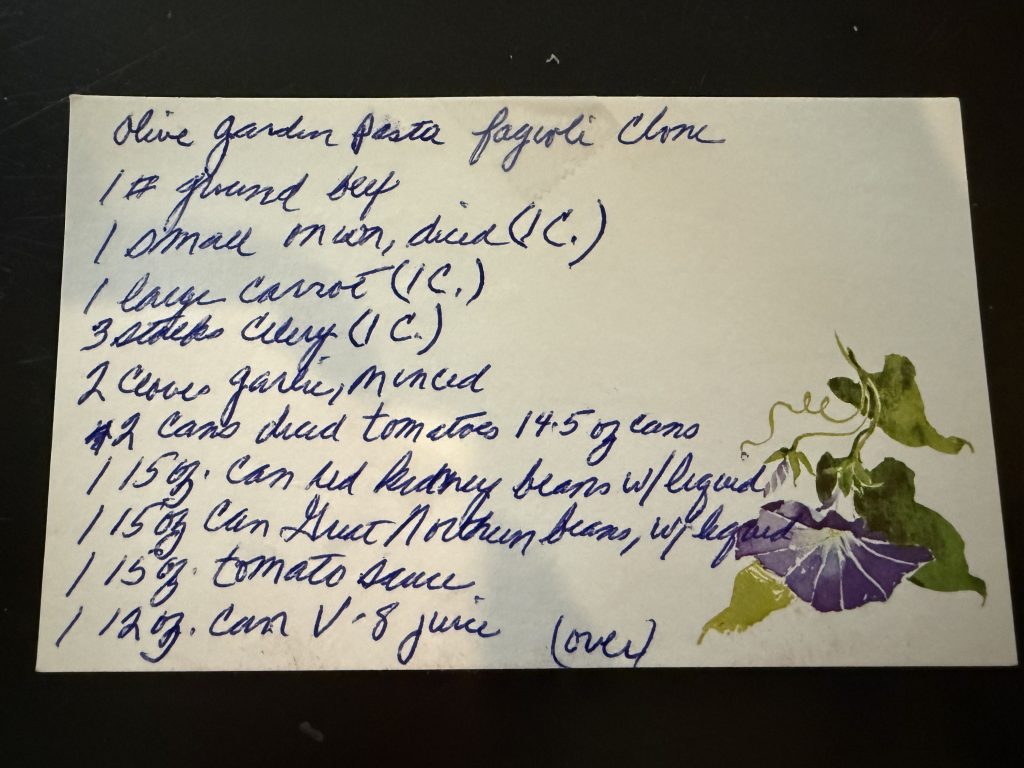 Olive Garden Pasta fagioli Clone
1 # ground beef
1 small onion, diced (1 C.)
1 large carrot (1 C.)
3 stalks celery (1 C.)
2 cloves garlic, minced
2 cans diced tomatoes 14.5 oz cans
1 15 oz. can red kidney beans w/ liquid
1 15 oz can Great Northern beans, w/ liquid
1 15 oz. tomato sauce
1 12 oz. can V-8 juice (over)